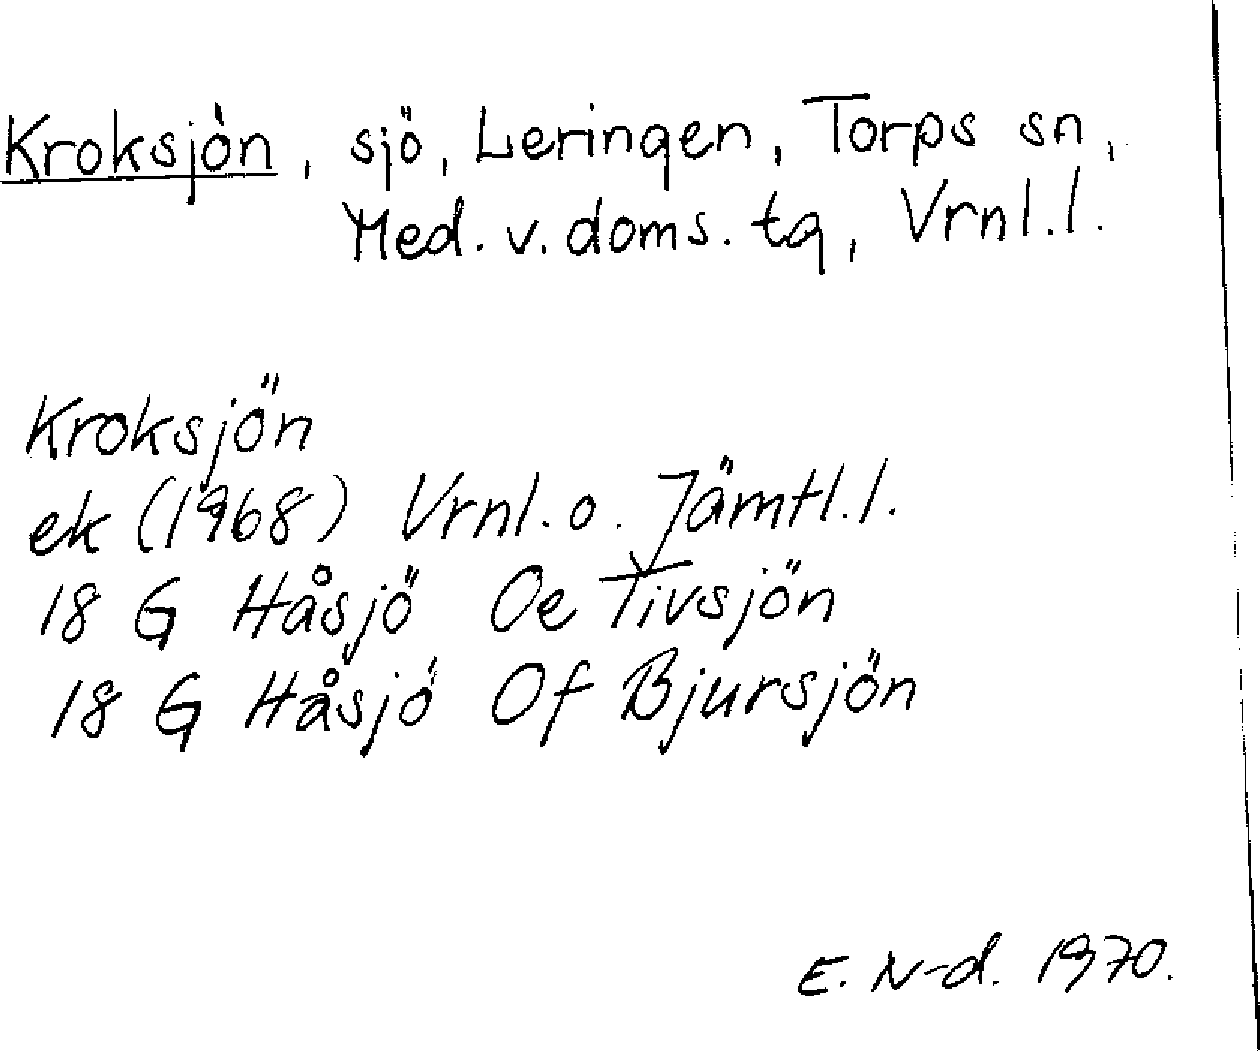 Kroksjön, sjö, Leringen, Torps sn,
Med. v. doms. tg, Vrnl.l.
Kroksjön
ek (1968) Vrnl. o. Jämtl.l.
18 G Håsjö Oe Tivsjön
18 G Håsjö Of Bjursjön
E. N-d. 1970.